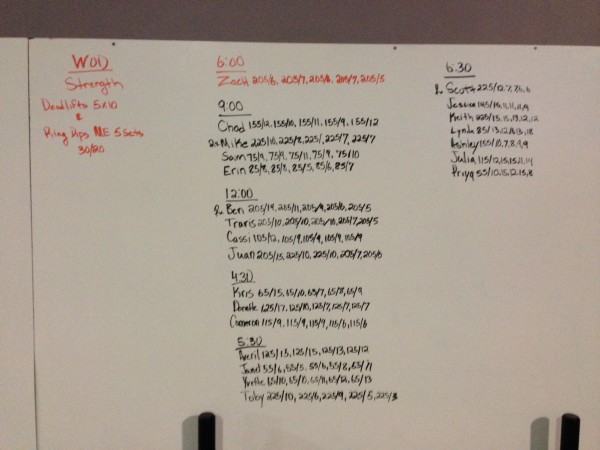 WOD
Strength
Deadlifts 5x10
&
Ring Dips ME 5 Sets
30/20
6:00
Zach 205/8, 205/7, 205/8, 205/7, 205/5
9:00
Chad 155/12, 155/10, 155/11, 155/9, 155/12
Mike 225/10, 225/8, 225/, 225/7, 225/7
Sam 75/9, 75/9, 75/11, 75/9, 75/10
Erin 85/8, 85/8, 85/5, 85/6, 85/7
12:00
Ben 205/14, 205/11, 205/9, 205/6, 205/5
Travis 205/10, 205/10, 205/10, 205/7, 205/5
Cassi 105/12, 105/9, 105/9, 105/9, 105/9
Juan 205/15, 225/10, 225/10, 205/7, 205/6
4:30
Kris 65/15, 65/10, 65/7, 65/8, 65/9
125/17, 125/10, 125/7, 125/7, 125/7
Cameron 115/9, 115/9, 115/9, 115/6, 115/6
5:30
Averil 125/15, 125/15, 125/13, 125/12
Janel 55/6, 55/5, 55/6, 55/8, 65/11
Yvette 65/10, 65/10, 65/11, 65/12, 65/13
Toby 225/10, 225/8, 225/9, 225/5, 225/3
6:30
Scott 225/12, 7, 8, 6, 6
Jessica 145/15, 11, 11, 11, 9
Keith 225/15, 15, 13, 12, 12
Lynda 85/13, 12, 18, 13, 18
Ashley 155/10, 7, 8, 9, 9
Julia 115/12, 15, 15, 11, 14
Priya 55/10, 15, 12, 15, 8